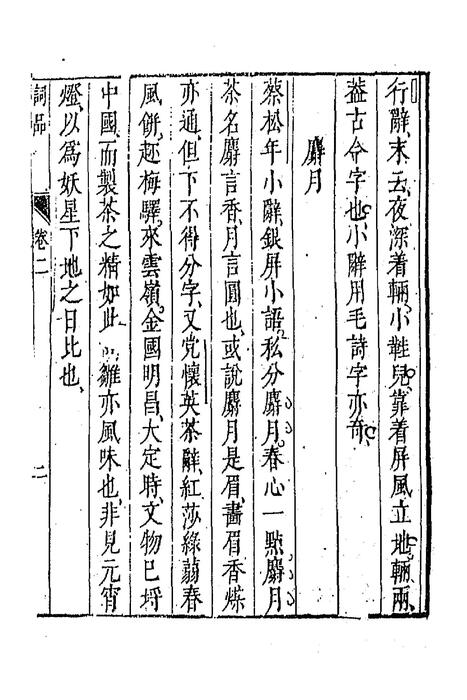 行辭末云夜深着輛小鞋兒靠着屏風立地輛兩
葢古今字也小辭用毛詩字亦奇
麝月
蔡松年小辭銀屏小語私分麝月春心一點麝月
茶名麝言香月言圓也或說麝月是眉畵眉香煤
亦通但下不得分字又党懷英茶辭紅莎綠蒻春
風餅趂梅驛來雲嶺金國明昌大定時文物已埒
中國而製茶之精如此雛亦風味也非見元宵
燈以爲妖星下地之日比也
詞品 卷二 二